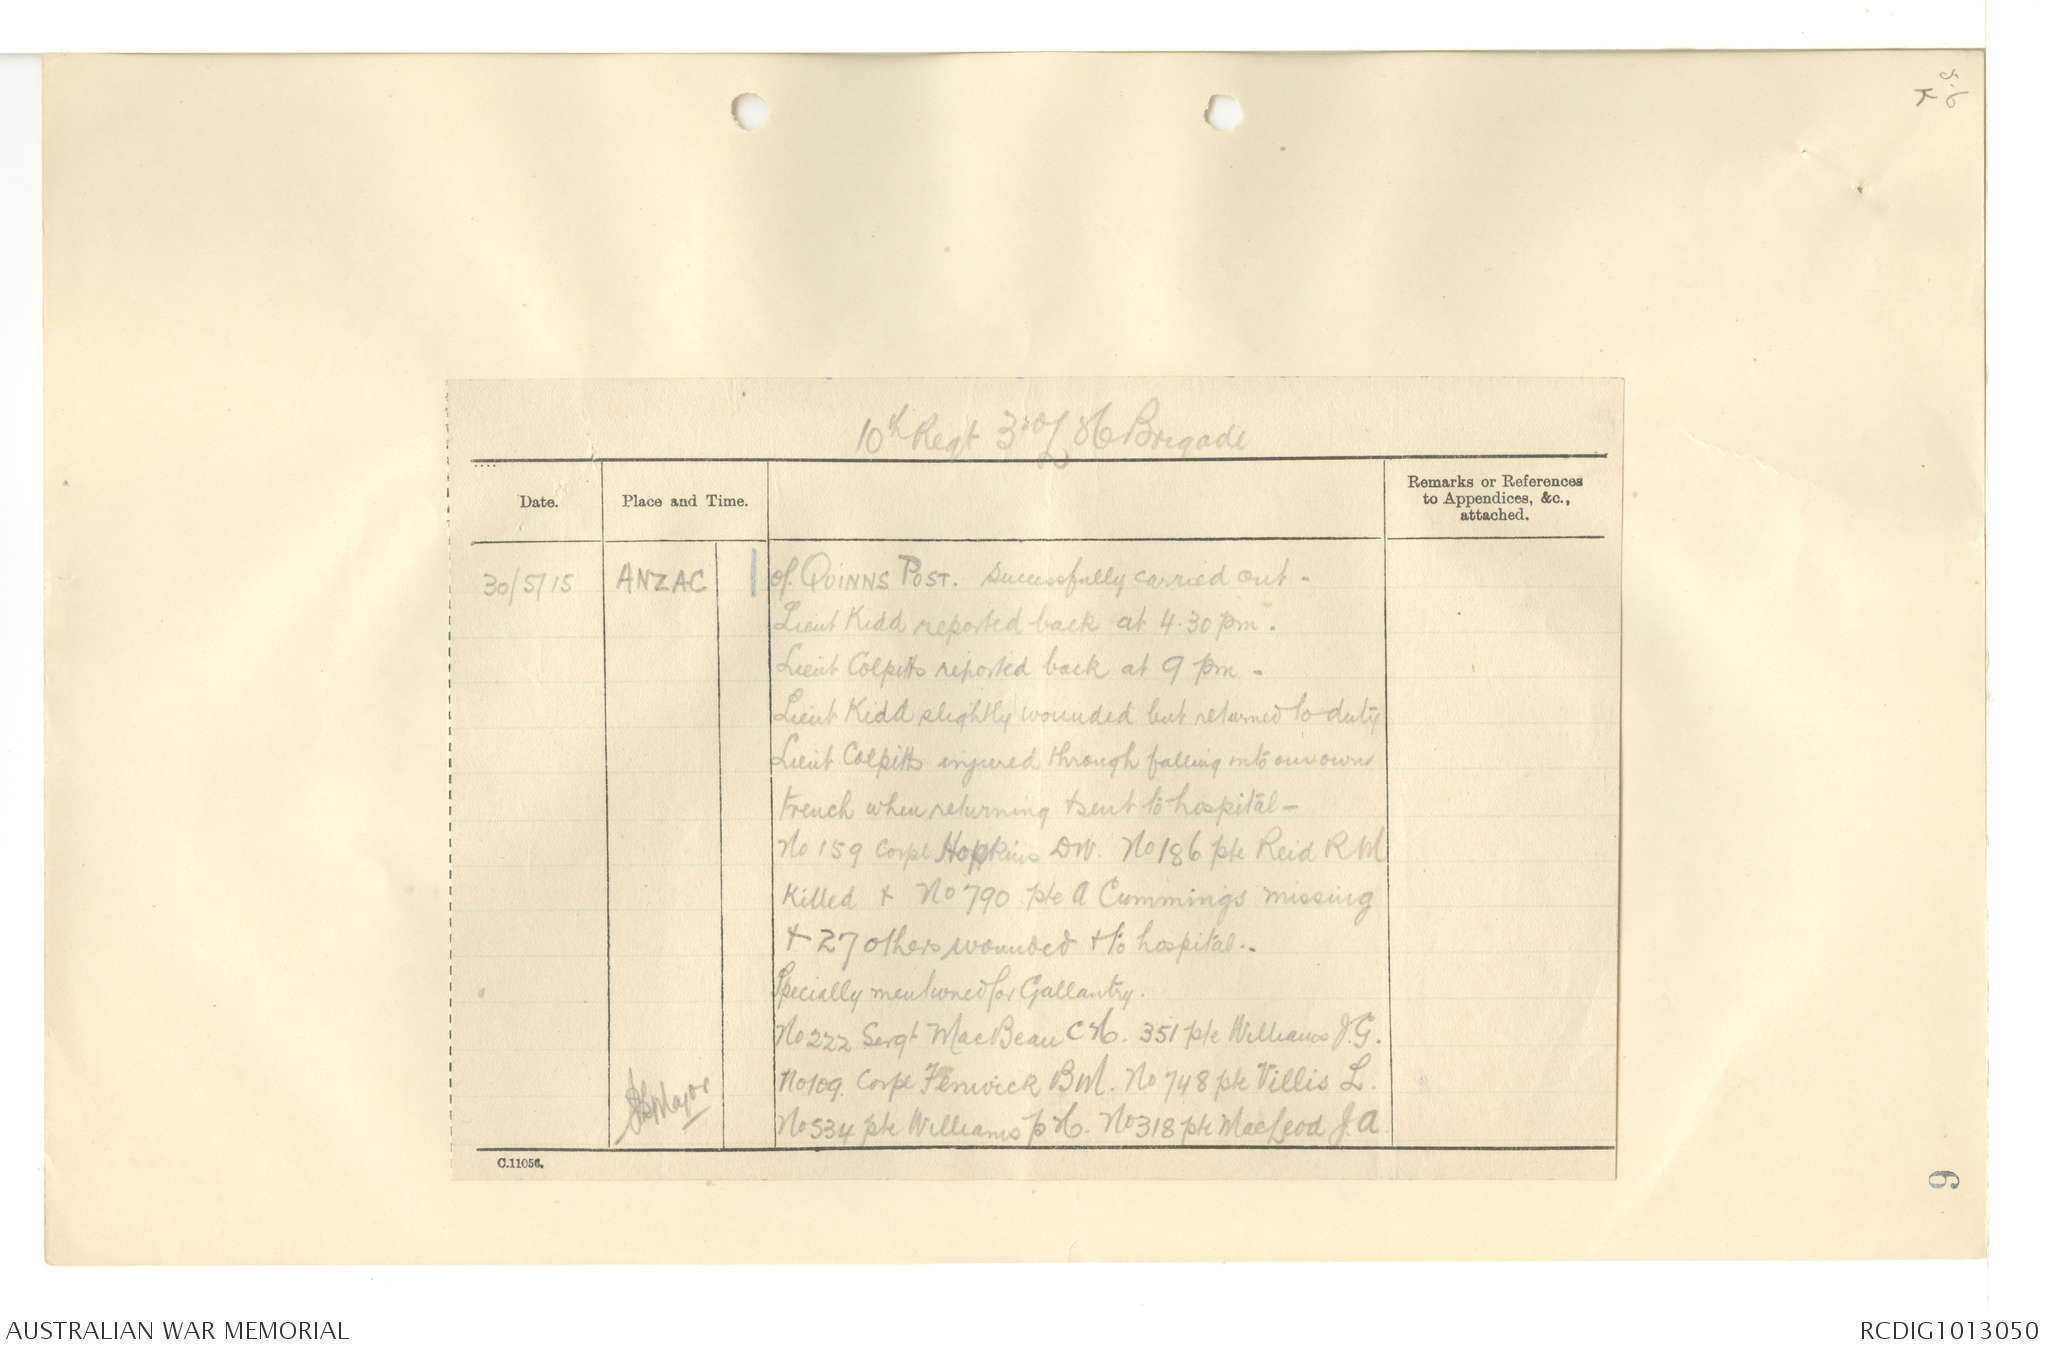 10th Regt 3rd L H Brigade
Date.
Place and Time.
Remarks or References
to Appendices, &c.,
attached.
30/5/15
ANZAC
of QUINNS POST. successfully carried out -
Lieut Kidd reported back at 4.30 pm.
Lieut Colpitts reported back at 9 pm -
Lieut Kidd slightly wounded but returned to duty
Lieut Colpitts injured through falling into our own
trench when returning & sent to hospital -
No 159 Corpl Hopkins DW. No 186 pte Reid R M
Killed & No 790 pte A Cummings missing
& 27 others wounded & to hospital..
Specially mentioned for Gallantry.
No 222 Sergt MacBean C H. 351 pte Williams J.G.
No 109. Corpl Fenwick B M. No 748 pte Villis L.
No 534 pte Williams p H. No 318 pte MacLeod J.A
Major
C.11056.
9
AUSTRALIAN WAR MEMORIAL
RCDIG1013050